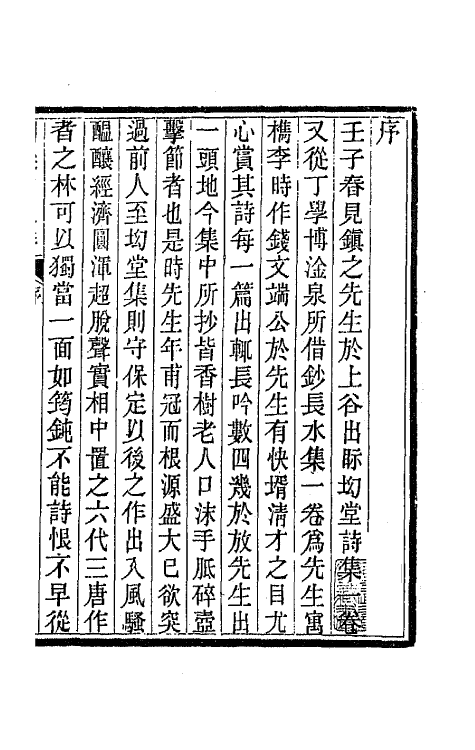 序
壬子春見鎮之先生於上谷出眎坳堂詩集一卷
又從丁學博淦泉所借鈔長水集一卷爲先生寓
檇李時作錢文端公於先生有快壻淸才之目尤
心賞其詩每一篇出輒長吟數四幾於放先生出
一頭地今集中所抄皆香樹老人口沫手胝碎壺
擊節者也是時先生年甫冠而根源盛大已欲突
過前人至坳堂集則守保定以後之作出入風騷
醞釀經濟圓渾超脫聲實相中置之六代三唐作
者之林可以獨當一面如筠鈍不能詩恨不早從
序